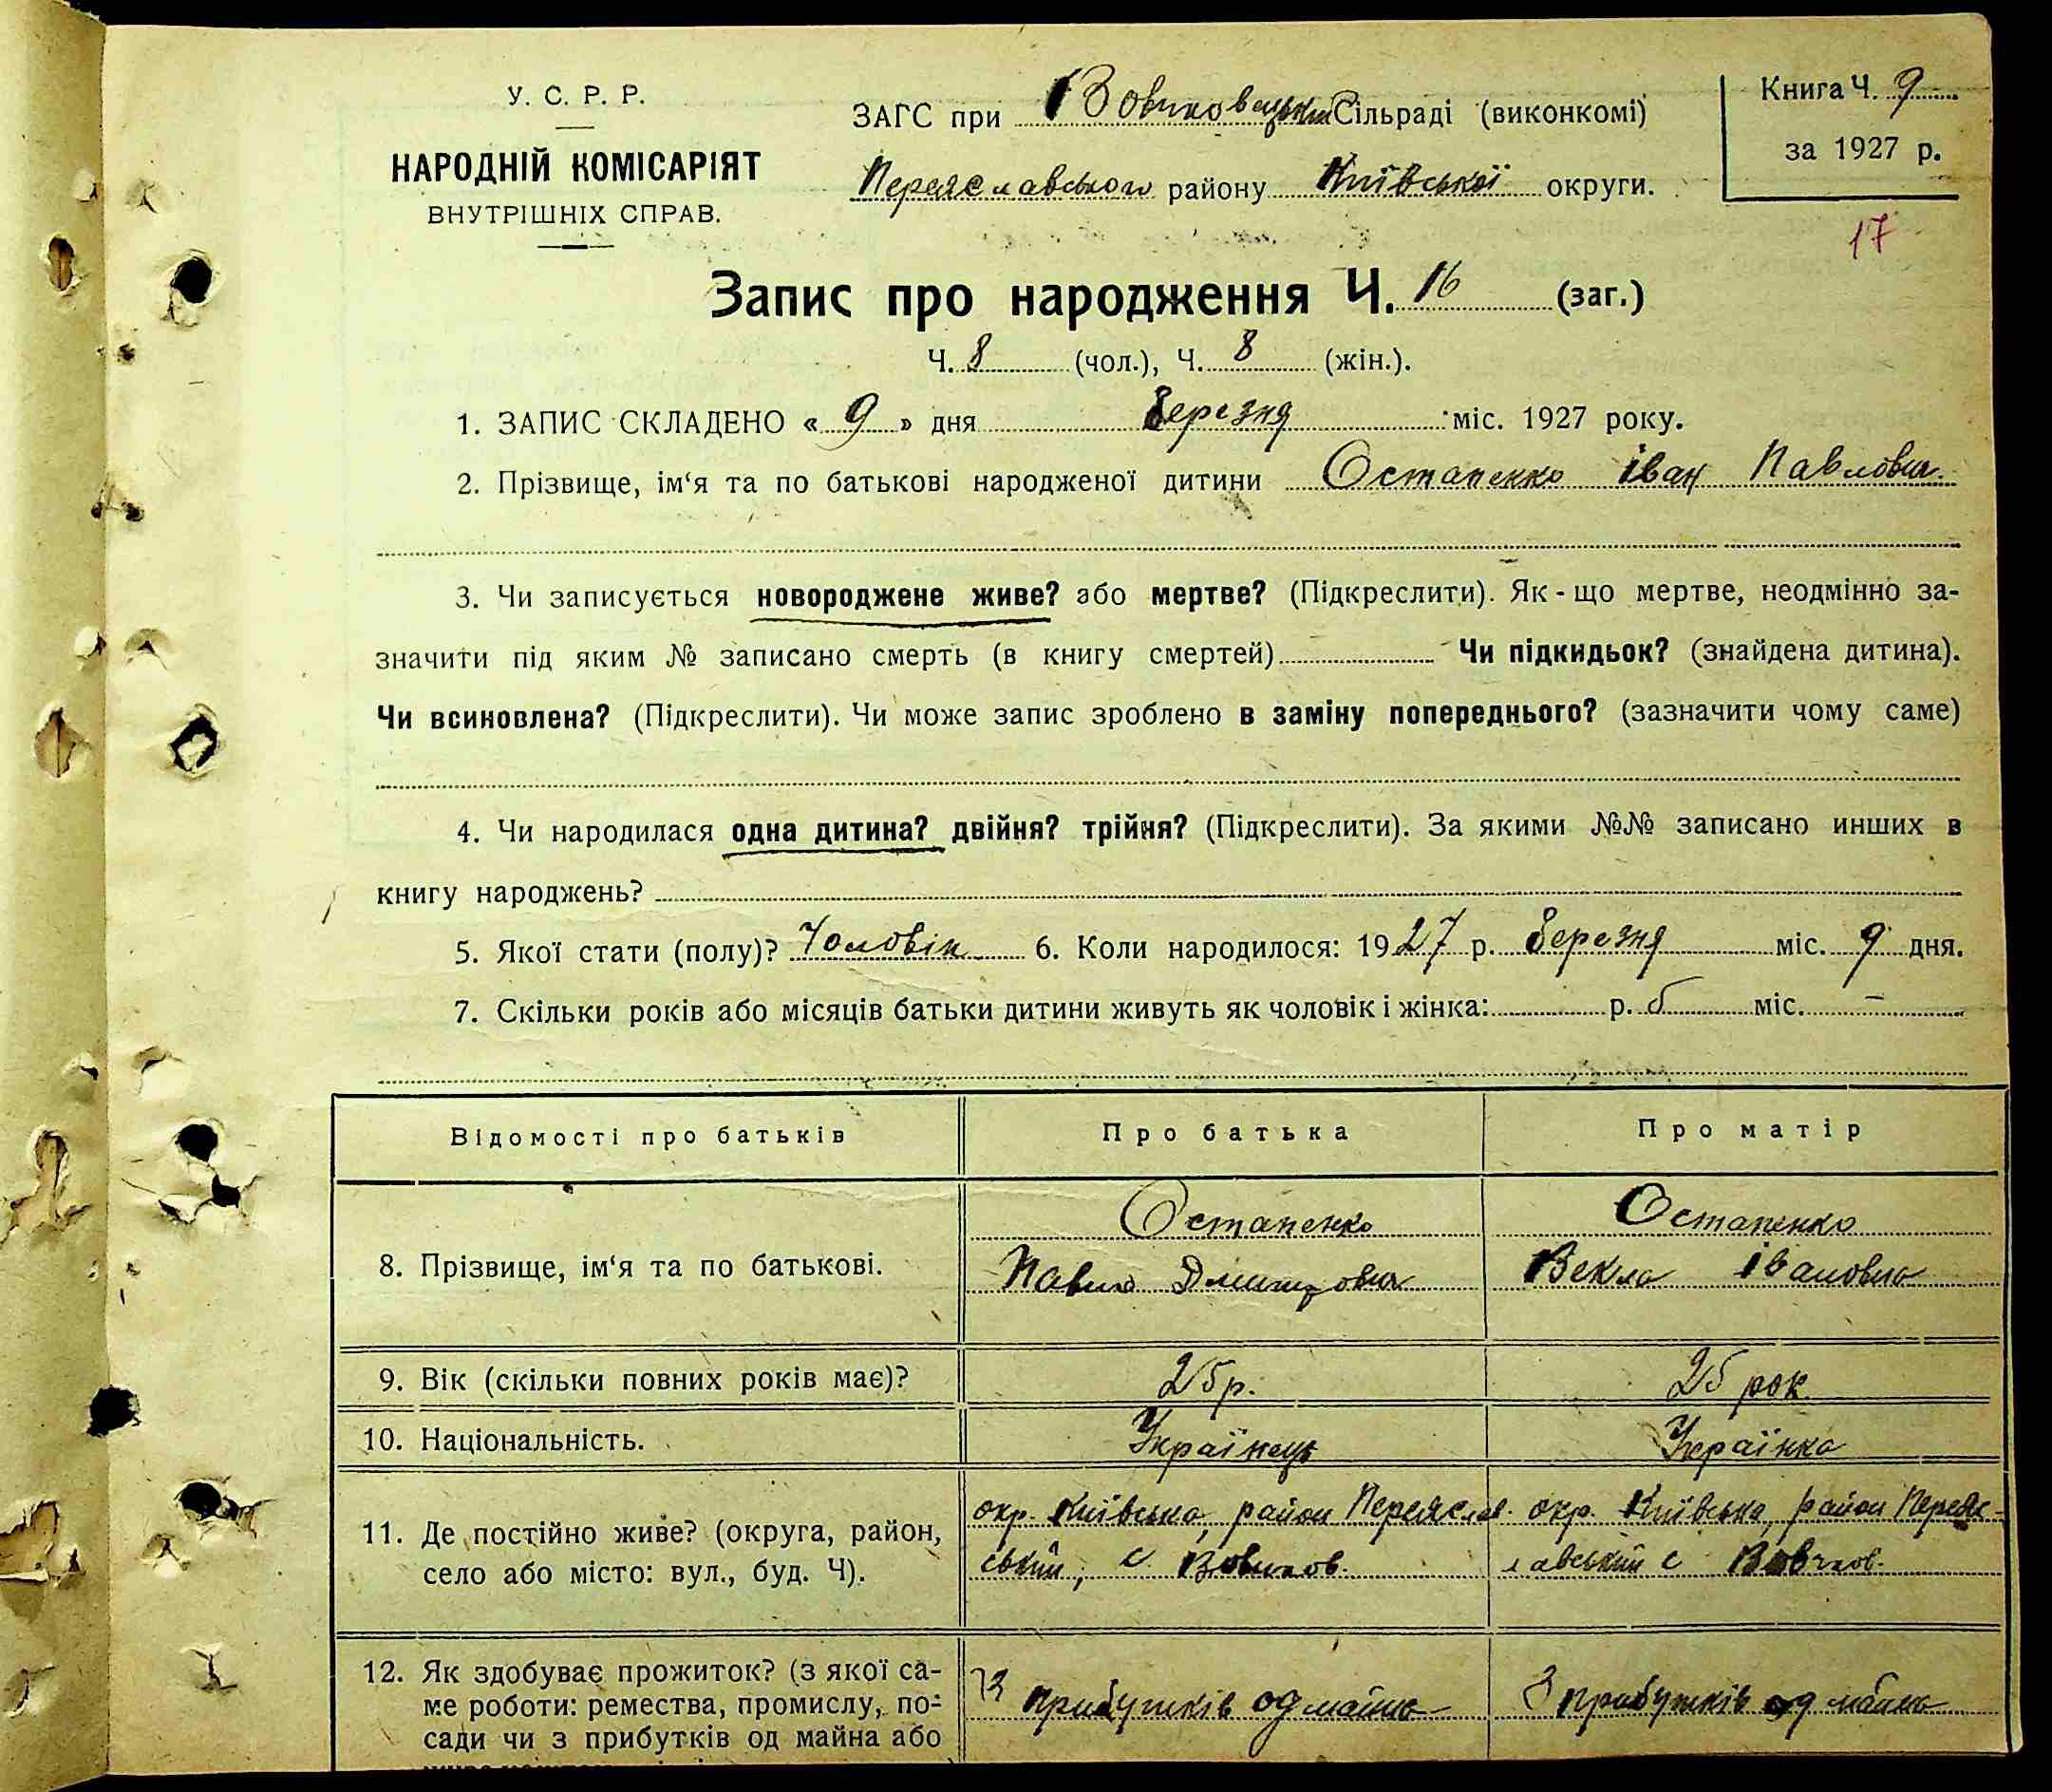 У. С. Р. Р.
НАРОДНІЙ КОМІСАРІЯТ
ВНУТРІШНІХ СПРАВ.
ЗАГС при Вовчковецькій Сільраді (виконкомі)
Переяславського району Київської округи.
Книга Ч. 9
за 1927 р.
17
Запис про народження Ч. 16 (заг.)
Ч. 8 (чол.), Ч. 8 (жін.).
1. ЗАПИС СКЛАДЕНО « 9 » дня Березня міс. 1927 року.
2. Прізвище, ім‘я та по батькові народженої дитини Остапенко Іван Павлович
3. Чи записується новороджене живе? або мертве? (Підкреслити). Як-що мертве, неодмінно за-
значити під яким № записано смерть (в книгу смертей) Чи підкидьок? (знайдена дитина).
Чи всиновлена? (Підкреслити). Чи може запис зроблено в заміну попереднього? (зазначити чому саме)
4. Чи народилася одна дитина? двійня? трійня? (Підкреслити). За якими №№ записано инших в
книгу народжень?
5. Якої стати (полу)? Чоловік 6. Коли народилося: 1927 р. Березня міс. 9 дня.
7. Скільки років або місяців батьки дитини живуть як чоловік і жінка: р. 5 міс. —
Відомості про батьків Про батька Про матір
8. Прізвище, ім‘я та по батькові.
Остапенко
Павло Дмитрович
Остапенко
Векла Івановна
9. Вік (скільки повних років має)? 25 р. 25 рок
10. Національність. Українець Українка
11. Де постійно живе? (округа, район,
село або місто: вул., буд. Ч).
окр. Київська, район Переяслав-
ський, с. Вовчков.
окр. Київська, район Переяс-
лавський с Вовчков.
12. Як здобуває прожиток? (з якої са-
ме роботи: ремества, промислу, по-
сади чи з прибутків од майна або
З прибутків од майна
З прибутків од майна